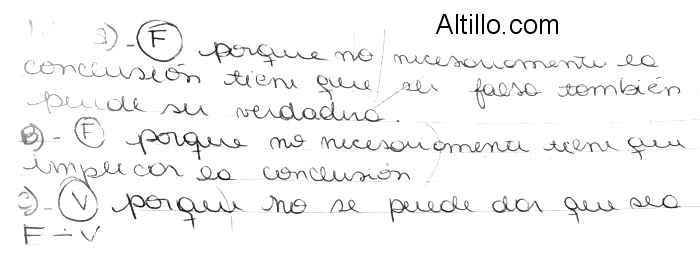 Altillo.com
a)- F porque no necesariamente la
conclusión tiene que ser falsa también
puede ser verdadera.
B)- F porque no necesariamente tiene que
implicar la conclusión
C)- V porque no se puede dar que sea
F ÷ V